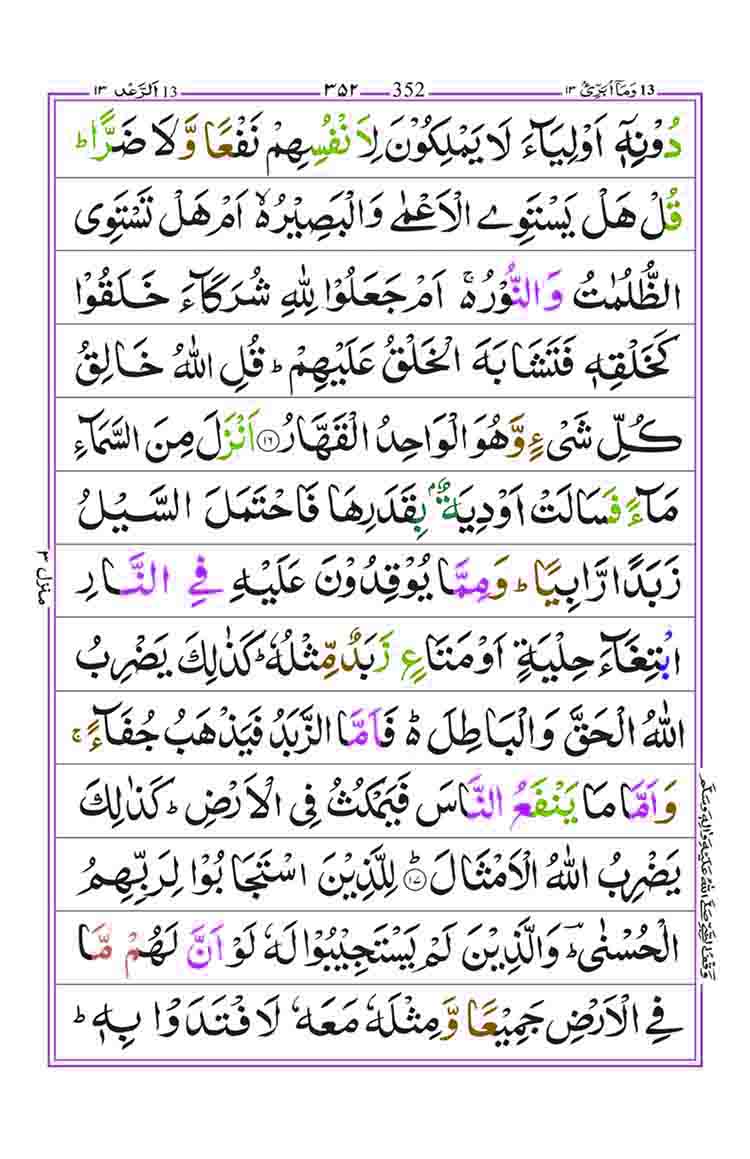 13 وَمَآ اُبَرِّئُ ١٣
352 ٣٥٢
13 اَلرَّعْد ١٣
دُوْنِهٖۤ اَوْلِيَآءَ لَا يَمْلِكُوْنَ لِاَنْفُسِهِمْ نَفْعًا وَّلَا ضَرًّا ؕ
قُلْ هَلْ يَسْتَوِي الْاَعْمٰى وَالْبَصِيْرُ ۙ اَمْ هَلْ تَسْتَوِى
الظُّلُمٰتُ وَالنُّوْرُ ۚ اَمْ جَعَلُوْا لِلّٰهِ شُرَكَآءَ خَلَقُوْا
كَخَلْقِهٖ فَتَشَابَهَ الْخَلْقُ عَلَيْهِمْ ؕ قُلِ اللّٰهُ خَالِقُ
كُلِّ شَىْءٍ وَّهُوَ الْوَاحِدُ الْقَهَّارُ ۝۱۶ اَنْزَلَ مِنَ السَّمَآءِ
مَآءً فَسَالَتْ اَوْدِيَةٌۢ بِقَدَرِهَا فَاحْتَمَلَ السَّيْلُ
زَبَدًا رَّابِيًا ؕ وَمِمَّا يُوْقِدُوْنَ عَلَيْهِ فِي النَّارِ
ابْتِغَآءَ حِلْيَةٍ اَوْ مَتَاعٍ زَبَدٌ مِّثْلُهٗ ؕ كَذٰلِكَ يَضْرِبُ
اللّٰهُ الْحَقَّ وَالْبَاطِلَ ۬ؕ فَاَمَّا الزَّبَدُ فَيَذْهَبُ جُفَآءً ۚ
وَاَمَّا مَا يَنْفَعُ النَّاسَ فَيَمْكُثُ فِى الْاَرْضِ ؕ كَذٰلِكَ
يَضْرِبُ اللّٰهُ الْاَمْثَالَ ؕ۝۱۷ لِلَّذِيْنَ اسْتَجَابُوْا لِرَبِّهِمُ
الْحُسْنٰى ؔؕ وَالَّذِيْنَ لَمْ يَسْتَجِيْبُوْا لَهٗ لَوْ اَنَّ لَهُمْ مَّا
فِي الْاَرْضِ جَمِيْعًا وَّمِثْلَهٗ مَعَهٗ لَافْتَدَوْا بِهٖ ؕ
منزل ٣
وقف النبي صلى الله عليه وآله وسلم